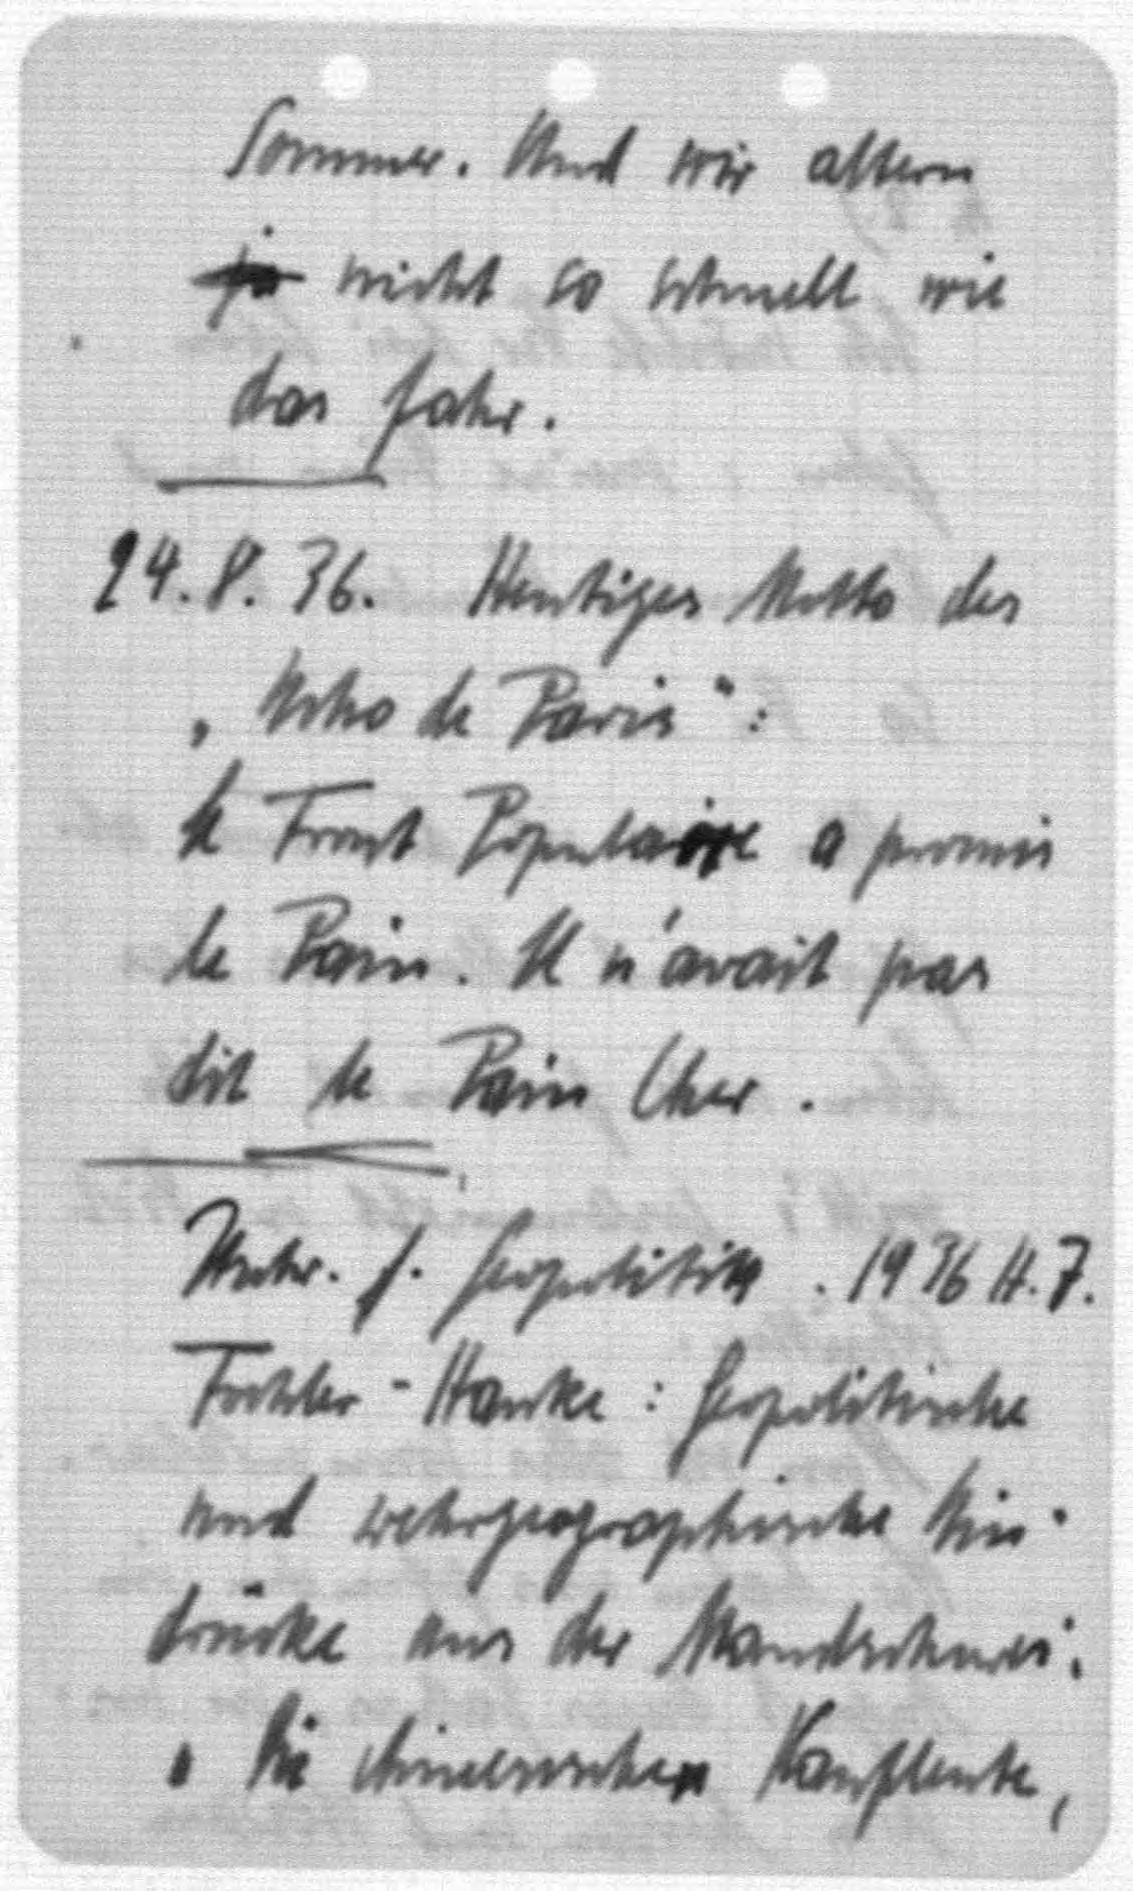 Sommer. Und wir altern
ja nicht so schnell wie
das Jahr.
24.8.36. Heutiges Motto des
„Echo de Paris“:
Le Front Populaire a promis
le Pain. Il n'avait pas
dit le Pain Cher.
f. Geopolitik. 1936 H.7.
Fochler-Hauke: Geopolitische
und wehrgeographische Ein-
drücke aus der Mandschurei.
„Die chinesischen Kaufleute,